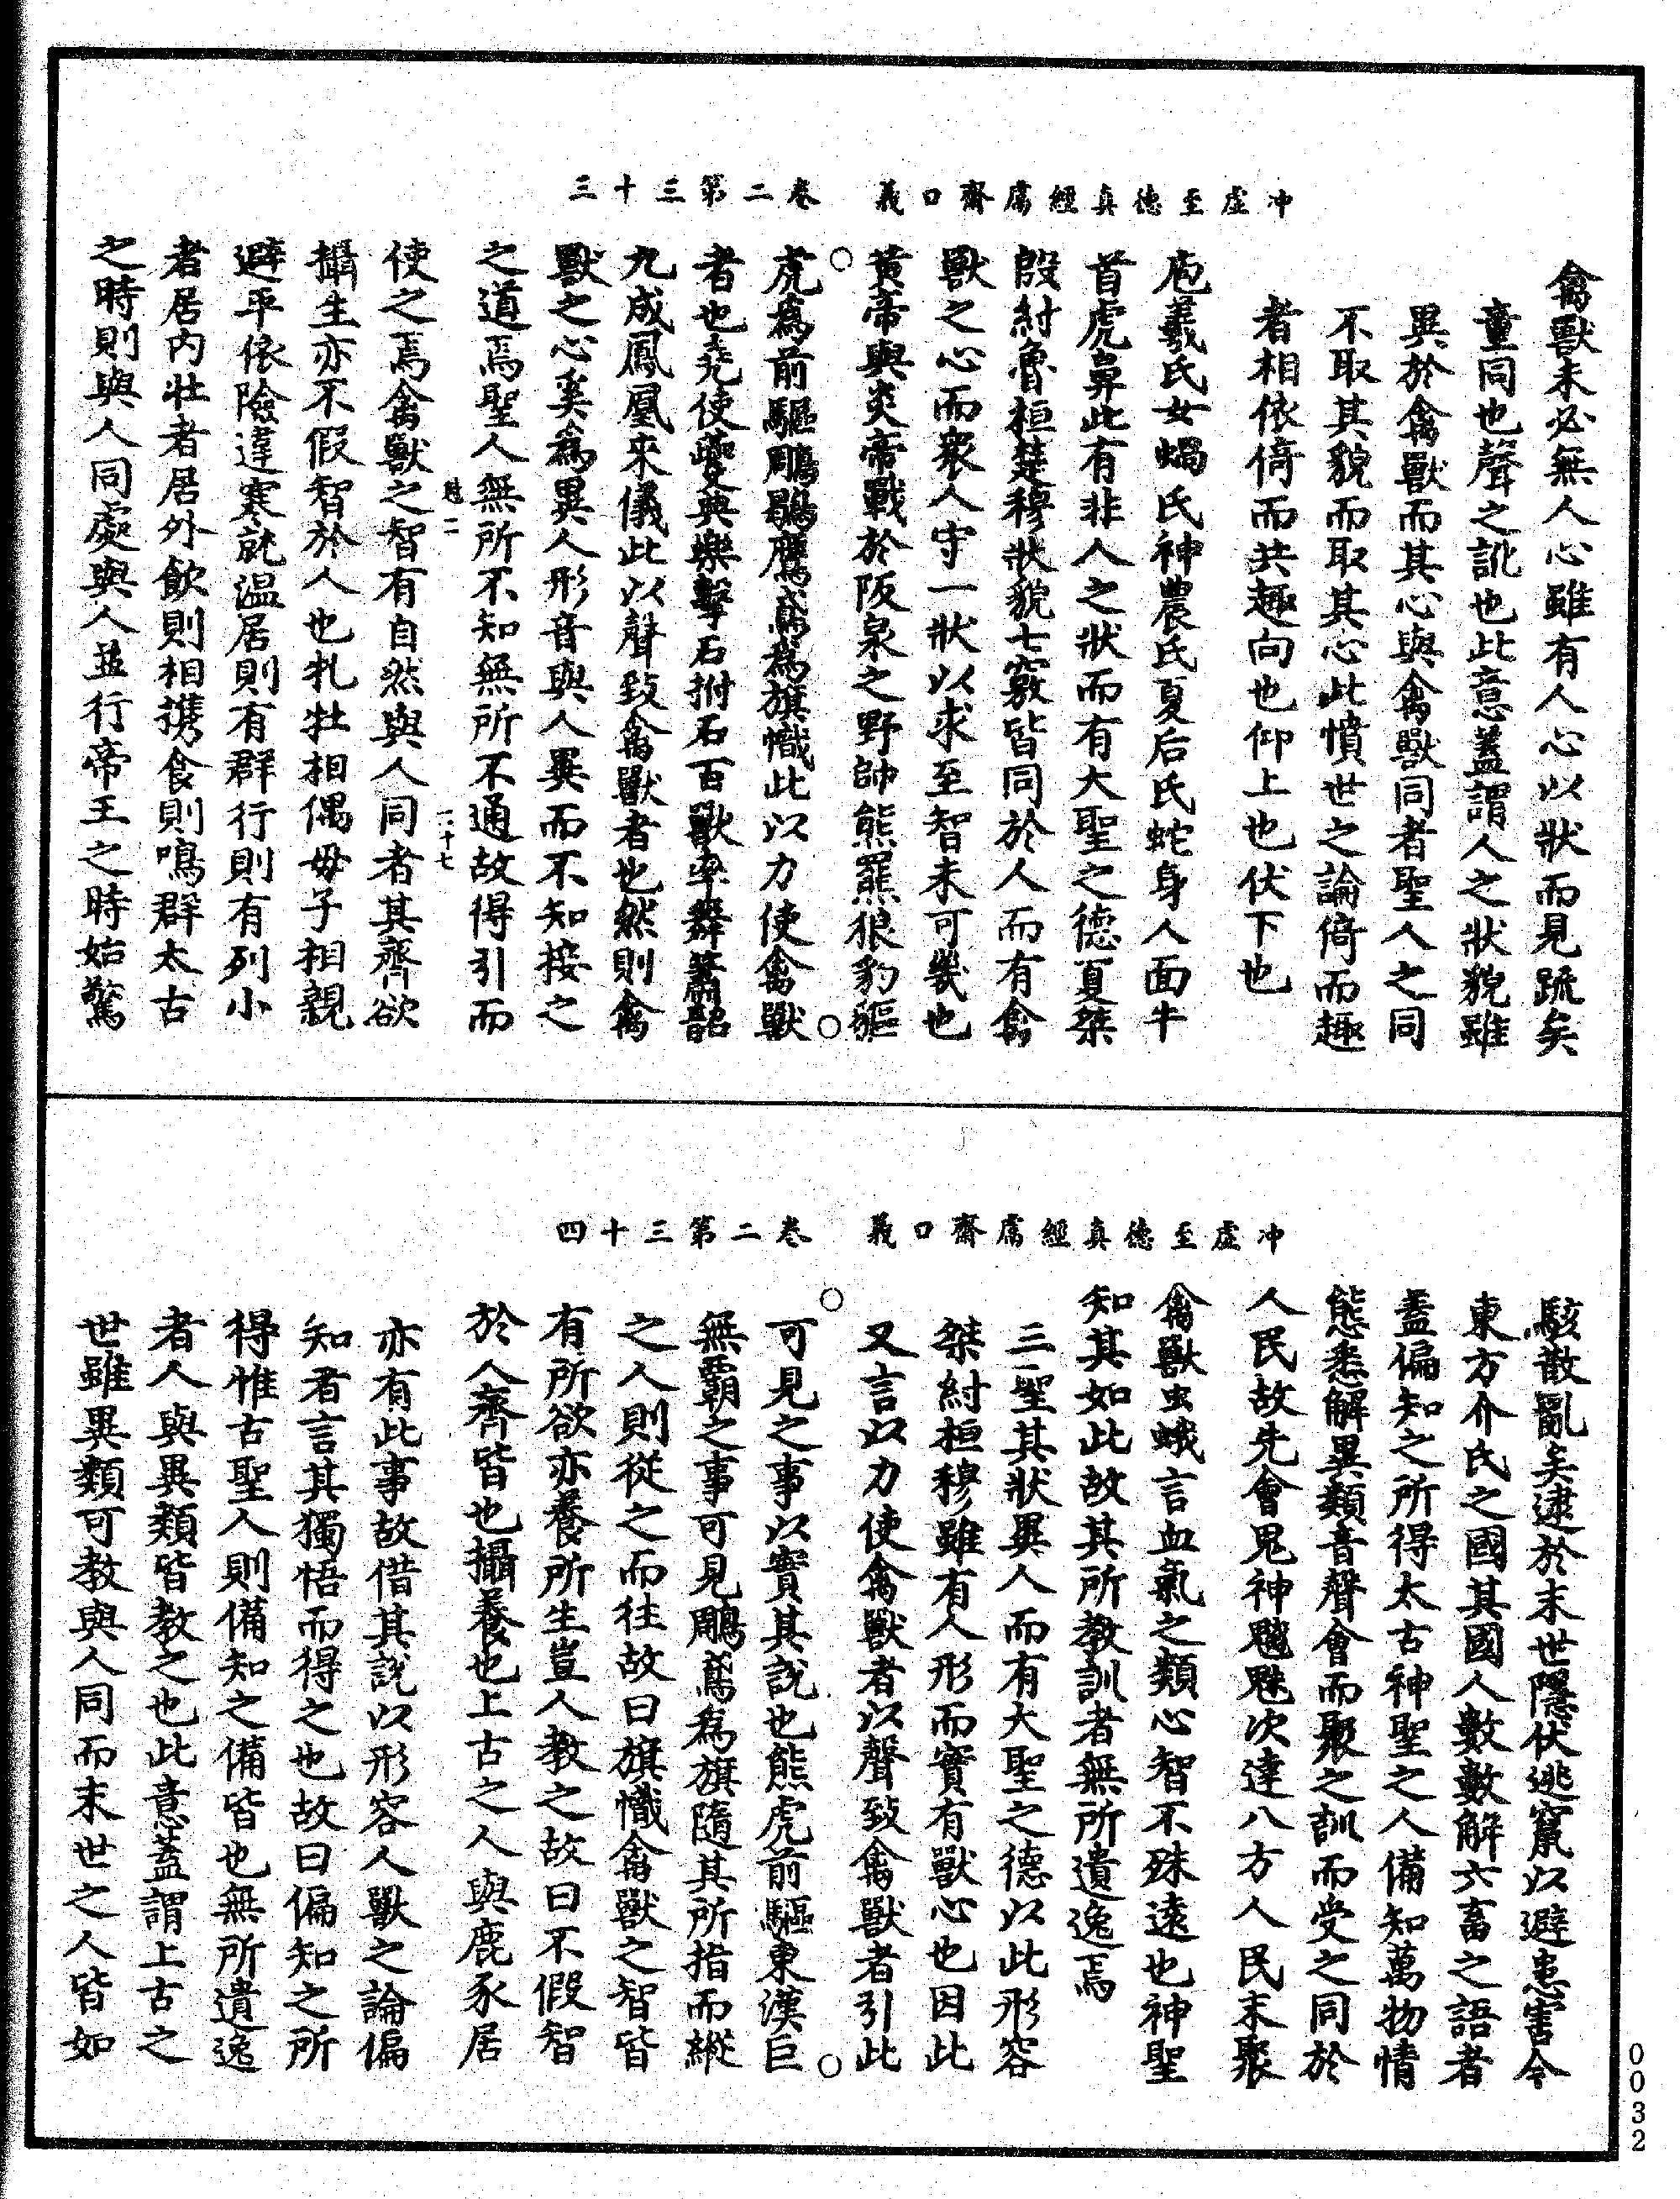 冲虛至德真經鬳齋口義　卷二第三十三
禽獸未必無人心雖有人心以狀而見疏矣
童同也聲之訛也此意蓋謂人之狀貌雖
異於禽獸而其心與禽獸同者聖人之同
不取其貌而取其心此憤世之論倚而趣
者相依倚而共趣向也仰上也伏下也
庖羲氏女蝸氏神農氏夏后氏蛇身人面牛
首虎鼻此有非人之狀而有大聖之德夏桀
殷紂魯桓楚穆狀貌七竅皆同於人而有禽
獸之心而衆人守一狀以求至智未可幾也
黃帝與炎帝戰於阪泉之野帥熊羆狼豹貙
虎爲前驅鵰鶡鷹鳶爲旗幟此以力使禽獸
者也堯使夔典樂擊石拊石百獸率舞簫韶
九成鳳凰來儀此以聲致禽獸者也然則禽
獸之心奚爲異人形音與人異而不知接之
之道焉聖人無所不知無所不通故得引而
二　十七
使之焉禽獸之智有自然與人同者其齊欲
攝生亦不假智於人也牝牡相偶母子相親
避平依險違寒就溫居則有群行則有列小
者居內壯者居外飲則相攜食則鳴群太古
之時則與人同處與人並行帝王之時始驚
冲虛至德真經鬳齋口義　卷二第三十四
駭散亂矣逮於末世隱伏逃竄以避患害今
東方介氏之國其國人數數解六畜之語者
蓋偏知之所得太古神聖之人備知萬物情
態悉解異類音聲會而聚之訓而受之同於
人民故先會鬼神魑魅次達八方人民末聚
禽獸虫蛾言血氣之類心智不殊遠也神聖
知其如此故其所教訓者無所遺逸焉
三聖其狀異人而有大聖之德以此形容
桀紂桓穆雖有人形而實有獸心也因此
又言以力使禽獸者以聲致禽獸者引此
可見之事以實其說也熊虎前驅東漢巨
無霸之事可見鵰鳶爲旗隨其所指而縱
之人則從之而往故曰旗幟禽獸之智皆
有所欲亦養所生豈人教之故曰不假智
於人齊皆也攝養也上古之人與鹿豕居
亦有此事故借其說以形容人獸之論偏
知者言其獨悟而得之也故曰偏知之所
得惟古聖人則備知之備皆也無所遺逸
者人與異類皆教之也此意蓋謂上古之
世雖異類可教與人同而末世之人皆如
0032